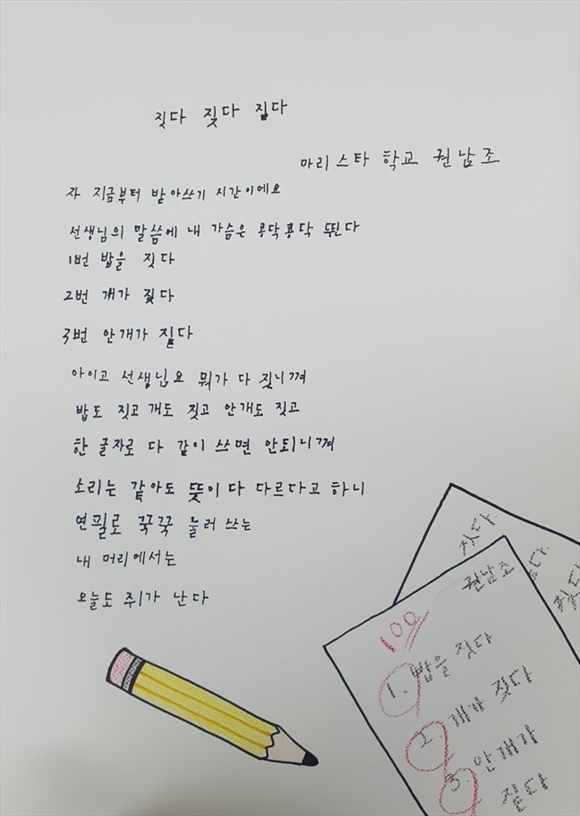 짓다 짖다 짙다
마리스타 학교 권남조
자 지금부터 받아쓰기 시간이에요
선생님의 말씀에 내 가슴은 콩닥콩닥 뛴다
1번 밥을 짓다
2번 개가 짖다
3번 안개가 짙다
아이고 선생님요 뭐가 다 짖니껴
밥도 짓고 개도 짖고 안개도 짓고
한 글자로 다 같이 쓰면 안되니껴
소리는 같아도 뜻이 다 다르다고 하니
연필로 꾹꾹 눌러 쓰는
내 머리에서는
오늘도 쥐가 난다
짓다.
권남조
100
1. 밥을 짓다
2. 개가 짖다
3. 안개가
짙다